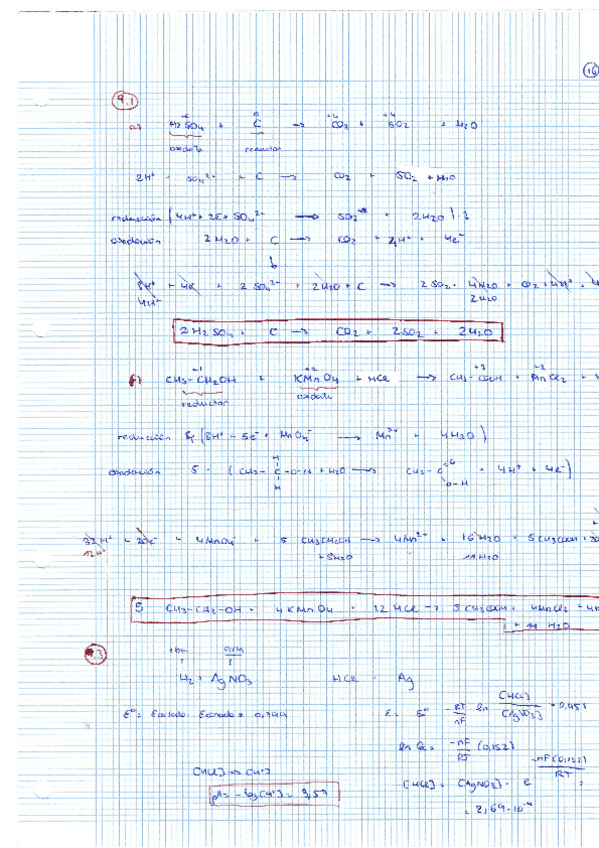 16
9.1
a) H2SO4 + C → CO2 + SO2 + H2O
oxidante reductor
2H+ SO4 2- + C → CO2 SO2 + H2O
reducción (4H+ + 2e- + SO4 2- → SO2 + 2H2O)·2
oxidación 2H2O + C → CO2 + 4H+ + 4e-
8H+ + 4e- + 2SO4 2- + 2H2O + C → 2SO2 + 4H2O + CO2 + 4H+
4H+ 2H2O
2H2SO4 + C → CO2 + 2SO2 + 2H2O
f) CH3-CH2OH + KMnO4 + HCl → CH3-COOH + MnCl2 +
reductor oxidante
reducción 4 (8H+ + 5e- + MnO4- → Mn2+ + 4H2O)
oxidación 5 · (CH3-C-O-H + H2O → CH3-C + 4H+ + 4e-)
H
H
O-H
32H+ + 20e- + 4MnO4 + 5 CH3CH2OH → 4Mn2+ + 16H2O + 5CH3COOH + 20
12H+ + 5H2O 11H2O
5 CH3-CH2-OH + 4KMnO4 + 12HCl → 5CH3COOH + 4MnCl2 +
+ 11 H2O
H2 + AgNO3 HCl + Ag
E = E° - RT/nF ln [HCl]/[AgNO3] = 0,951
ln Q = -nF/RT (0,152)
-nF(0,152)
RT
[HCl] = [AgNO3] · e
= 2,69·10-4
[HCl] → [H+]
pH = -log[H+] = 3,57